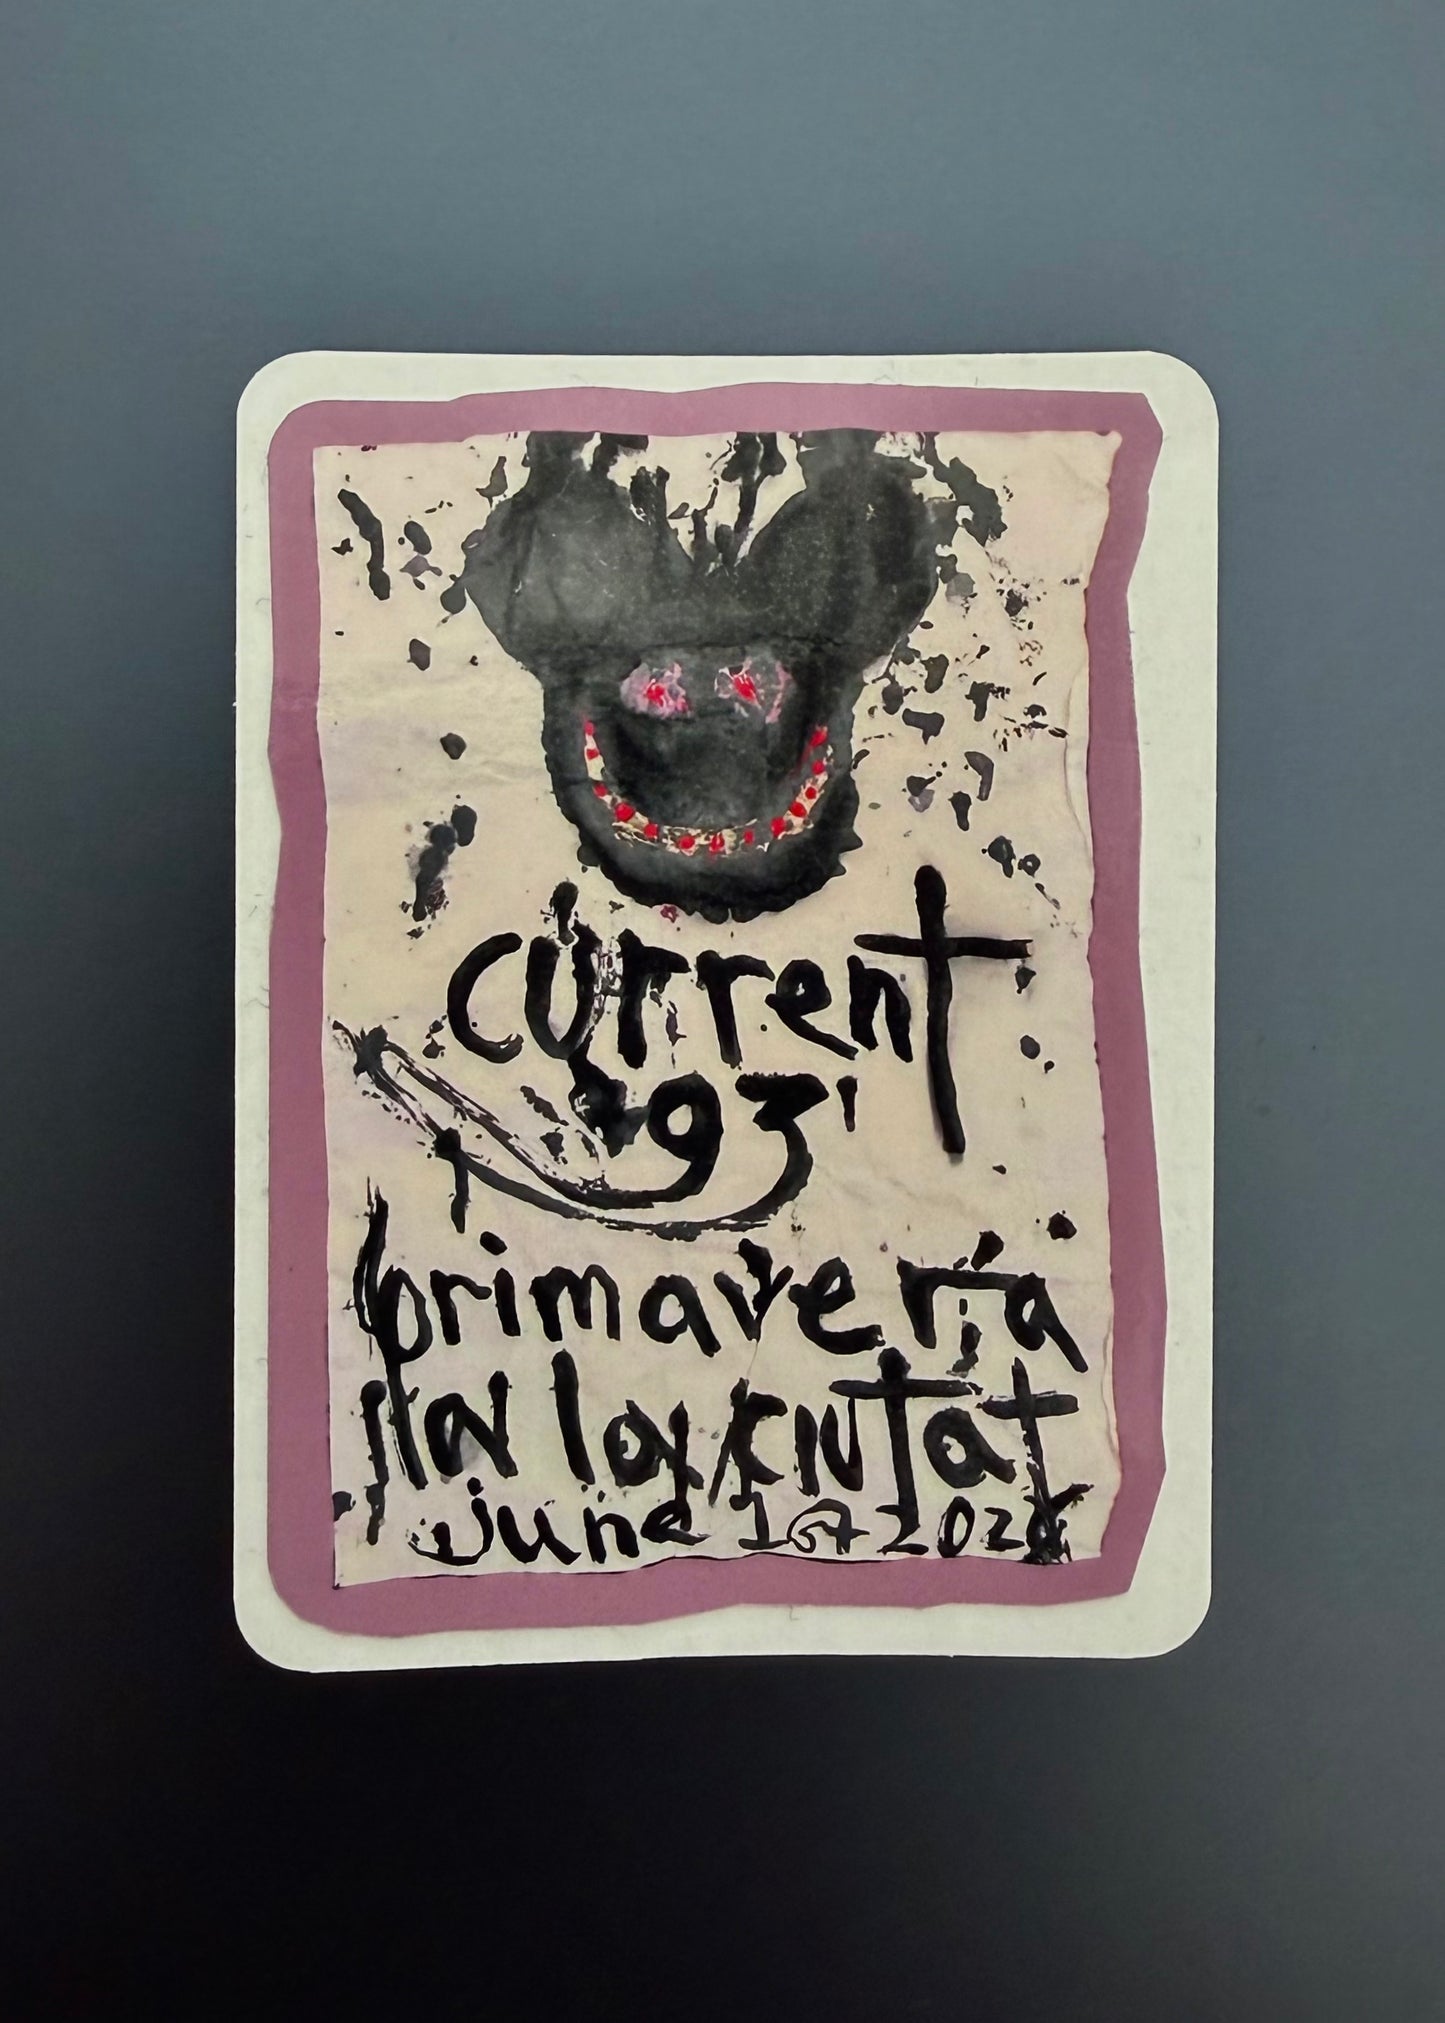 current
93'
primavera
a la ciutat
june 1st 2026